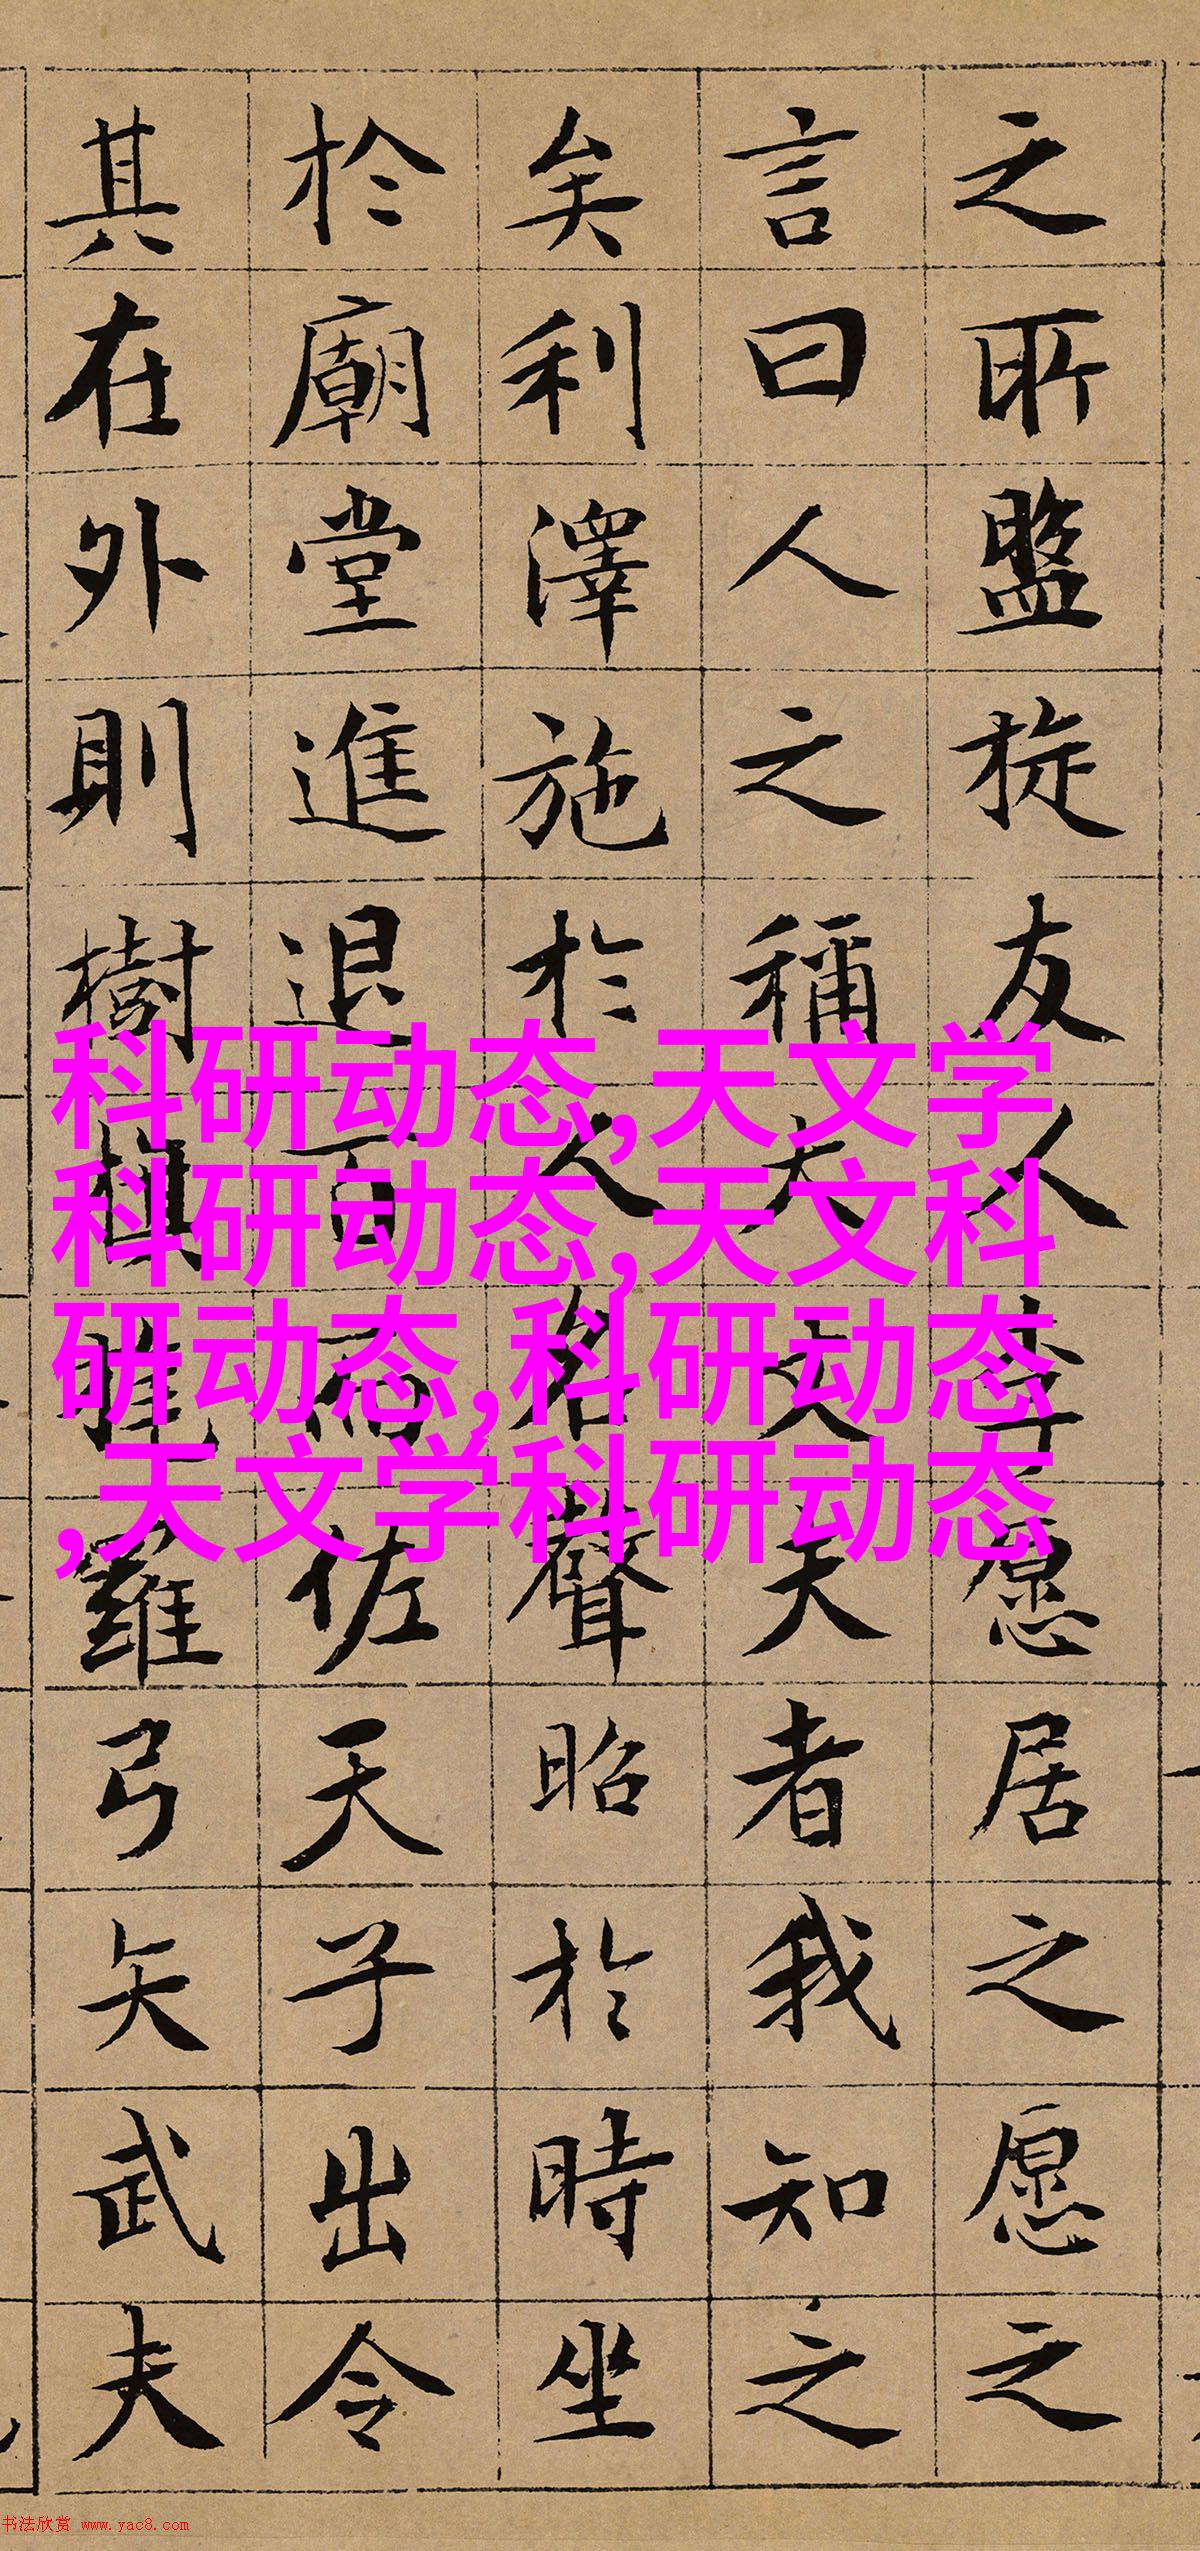 之所盤旋友人李愿居之愿之
言曰人之稱大丈夫者我知之
矣利澤施於人名聲昭於時坐
於廟堂進退百而佐天子出令
其在外則樹旗旄羅弓矢武夫
科研动态,天文学
科研动态,天文科
研动态,科研动态
,天文学科研动态
书法欣赏 www.yac8.com